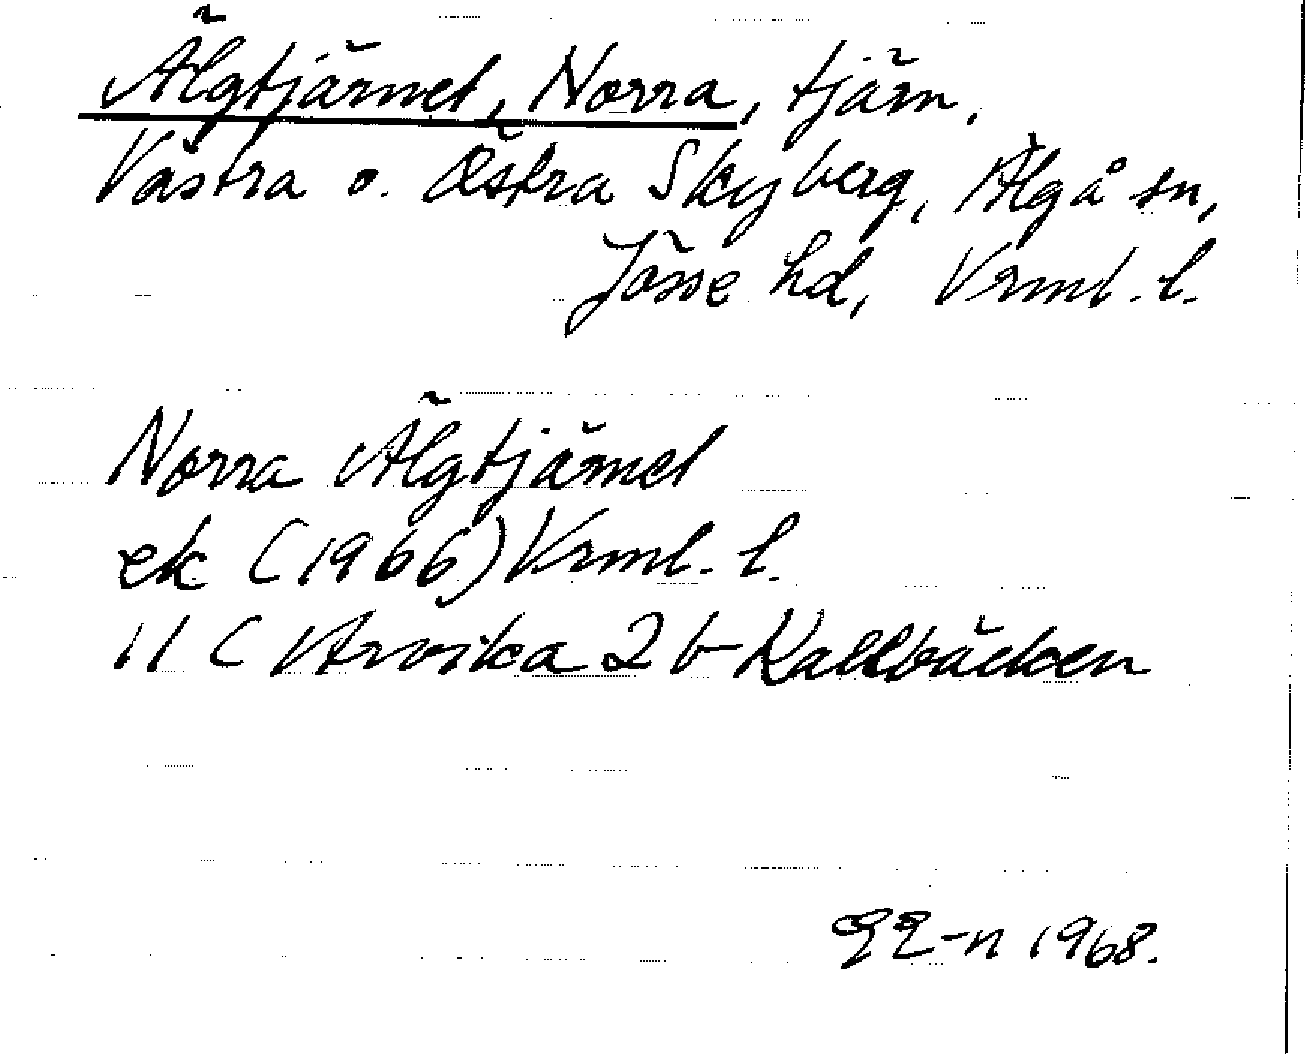 Älgtjärnet, Norra, tjärn.
Västra o. Östra Skyberg, Älgå sn,
Jösse hd, Vrml. l.
Norra Älgtjärnet
ek (1966) Vrml. l.
11 C Arvika 2 b Kallbäcken
1968.